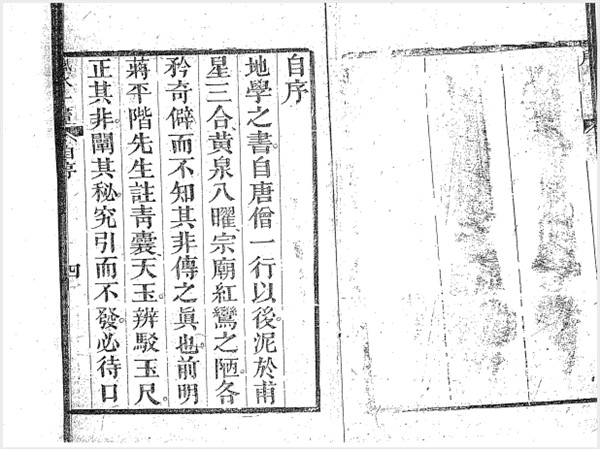 自序
地學之書自唐僧一行以後泥於甫
星三合黃泉八曜宗廟紅鸞之陋各
矜奇僻而不知其非傳之眞也前明
蔣平階先生註靑囊天玉辨駁玉尺
正其非闡其秘究引而不發必待口
自序
四